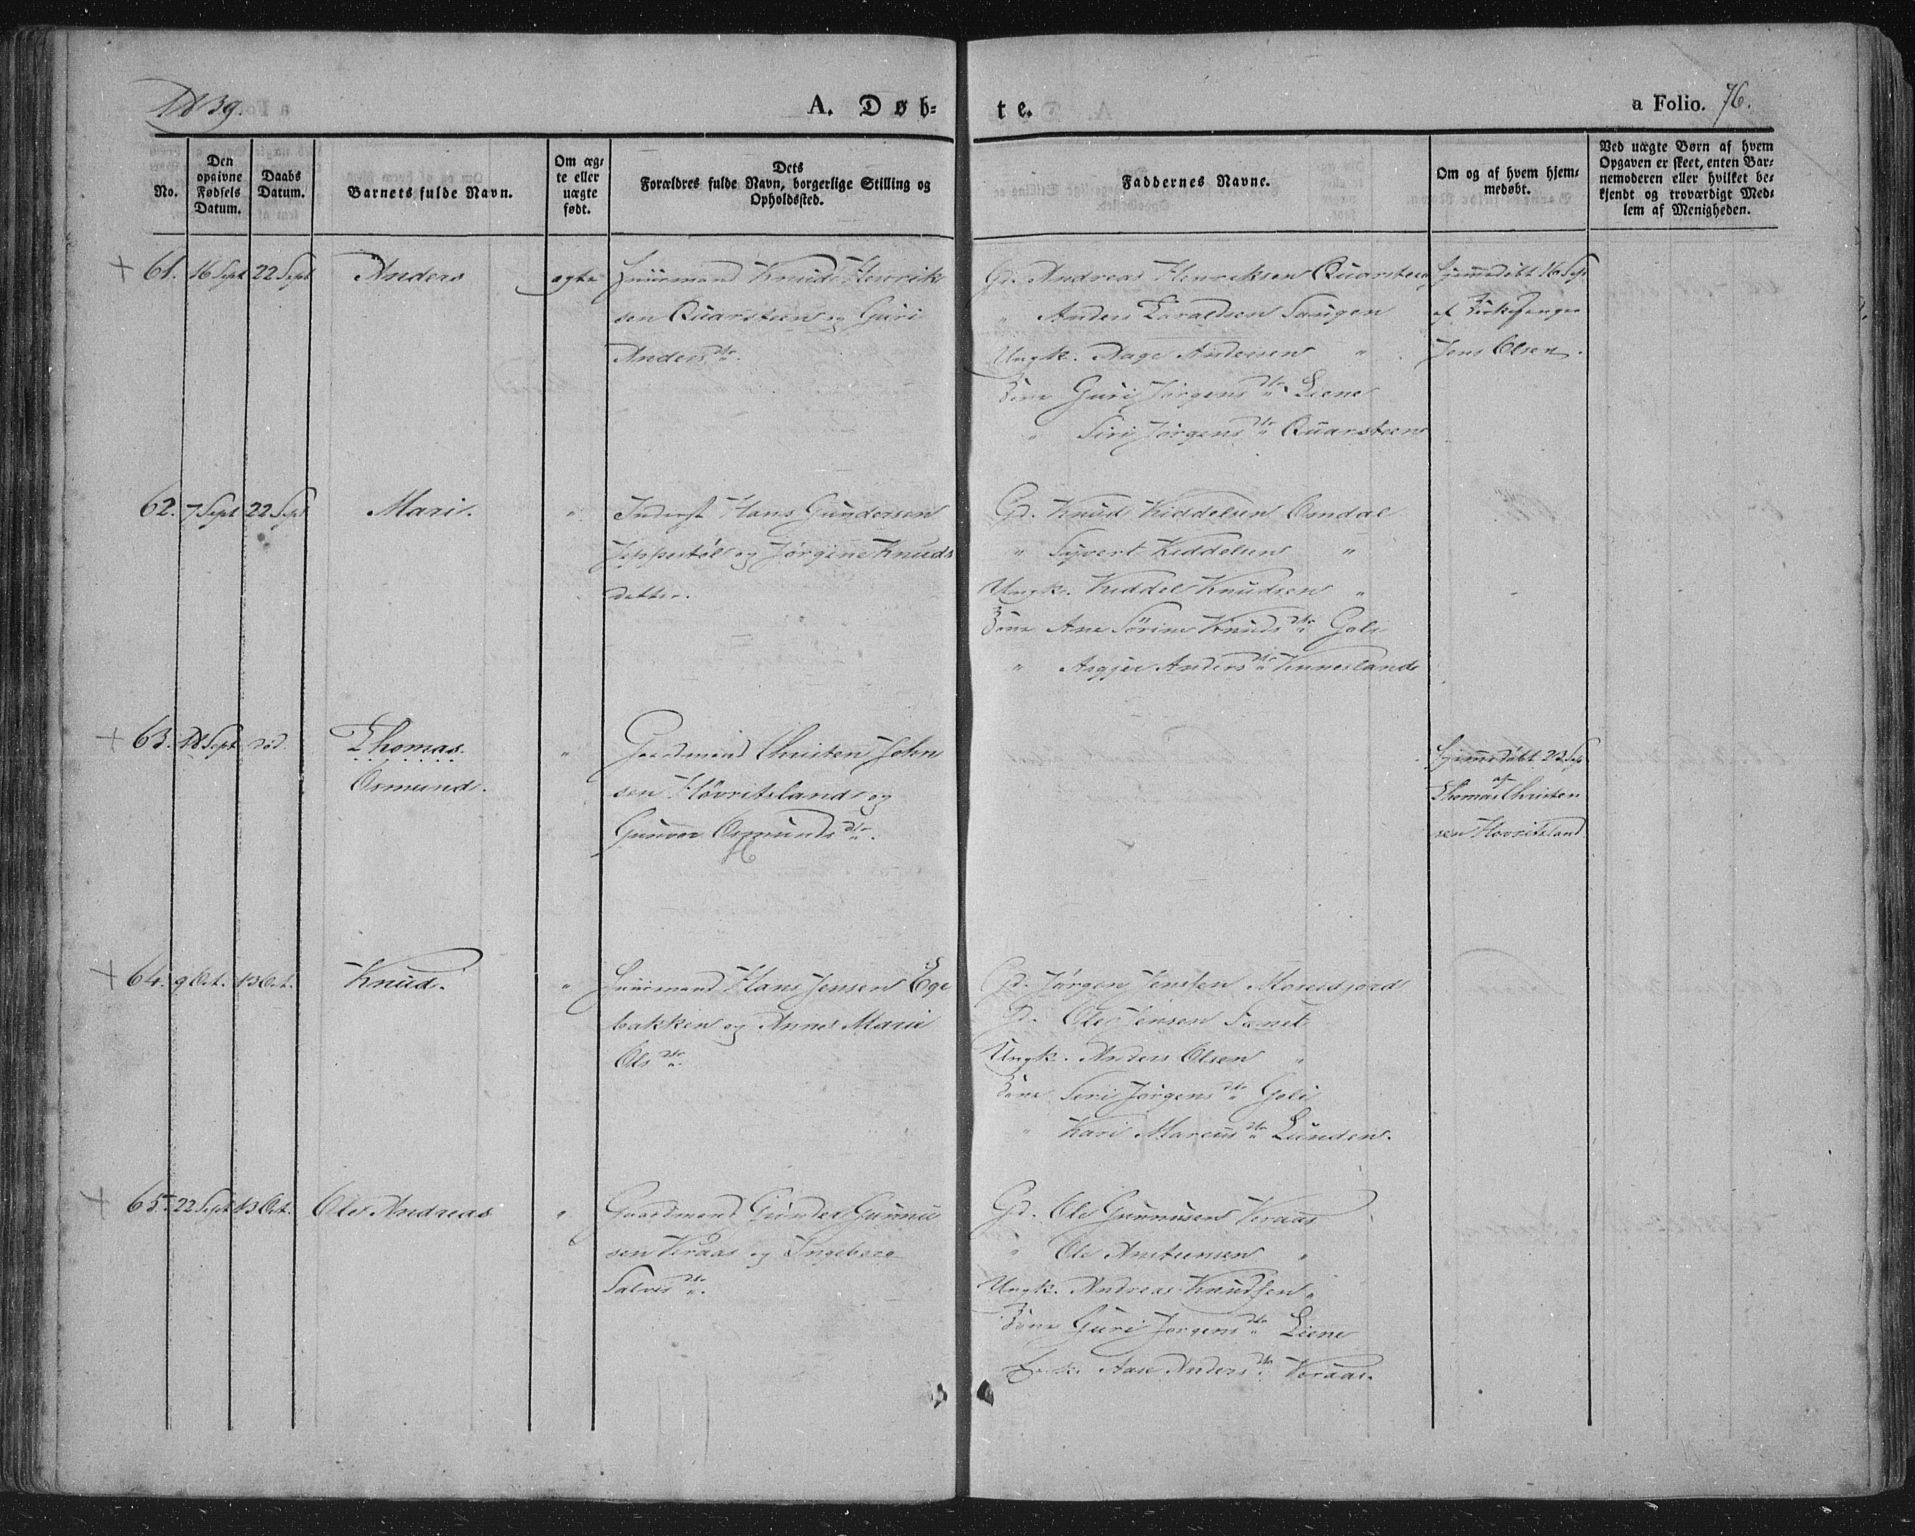 1839.
A. Døb-
te.
a Folio. 76.
No.
Den
opgivne
Fødsels
Datum.
Daabs
Datum.
Barnets fulde Navn.
Om æg-
te eller
uægte
født.
Dets
Forældres fulde Navn, borgerlige Stilling og
Opholdssted.
Faddernes Navne.
Om og af hvem hjem-
medøbt.
Ved uægte Børn af hvem
Opgaven er skeet, enten Bar-
nemoderen eller hvilket be-
kjendt og troværdigt Med-
lem af Menigheden.
+ 61. 16 Sept 22 Sept Anders ægte Huusmand Knud Henrik
sen Quarsteen og Guri
Anders dtr.
Gd. Andreas Henriksen Quarsteen
" Anders Taraldsen Saugen
Ungk. Aage Andersen "
Kone Guri Jørgens dtr Liene
" Siri Jørgens dtr Quarsteen
Hjemmedøbt 16 Sept
af
Jens Olsen.
62. 7 Sept 22 Sept Mari. " Inderst Hans Gundersen
Jeppestøl og Jørgine Knuds
datter.
Gd. Knud Kiddelsen Omdal
" Syvert Kiddelsen "
Ungk. Kiddel Knudsen "
Kone Ane Sørine Knuds dtr Goli
" Anders dtr Kennesland
+ 63. 18 Sept. død. Thomas " Gaardmand Christen John
Osmund.
sen Høvritsland og
Gunvor Osmunds dtr.
Hjemmedøbt 23 Sept
af
Thomas Christen
sen Hovritsland
+ 64. 9 Oct. 13 Oct. Knud. " Huusmand Hans Jensen Ege
bakken og Anne Marie
Ols dtr.
Gd. Jørgen Jenssen Moseidjord
Gd. Ole Jensen
Ungk. Anders Olsen "
Kone Siri Jørgens dtr Goli
" Kari Marcus dtr Lunden.
+ 65. 22 Sept 13 Oct. Ole Andreas " Gaardmand Gunder Gunnu
sen Veraas og Ingeborg
Salves dtr.
Gd. Ole Gunnusen Veraas
" Ole Anstensen "
Ungk. Andreas Knudsen "
Kone Guri Jørgens dtr Liene
Aase Anders dtr Veraas.